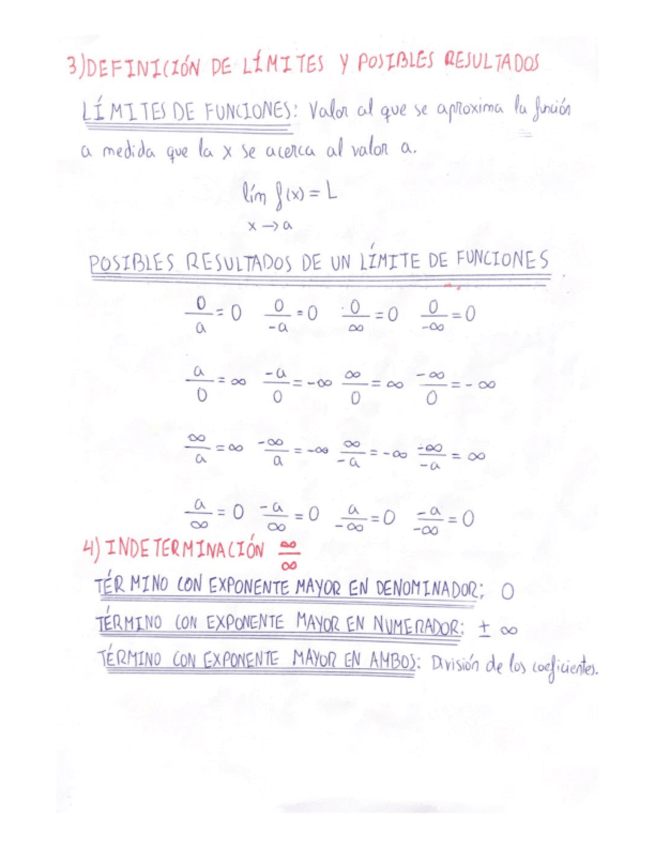 3) DEFINICIÓN DE LÍMITES Y POSIBLES RESULTADOS
LÍMITES DE FUNCIONES: Valor al que se aproxima la función
a medida que la x se acerca al valor a.
lím f(x) = L
x → a
POSIBLES RESULTADOS DE UN LÍMITE DE FUNCIONES
0/a = 0 0/-a = 0 0/∞ = 0 0/-∞ = 0
a/0 = ∞ -a/0 = -∞ ∞/0 = ∞ -∞/0 = -∞
∞/a = ∞ -∞/a = -∞ ∞/-a = -∞ -∞/-a = ∞
a/∞ = 0 -a/∞ = 0 a/-∞ = 0 -a/-∞ = 0
4) INDETERMINACIÓN ∞/∞
TÉRMINO CON EXPONENTE MAYOR EN DENOMINADOR: 0
TÉRMINO CON EXPONENTE MAYOR EN NUMERADOR: ± ∞
TÉRMINO CON EXPONENTE MAYOR EN AMBOS: División de los coeficientes.